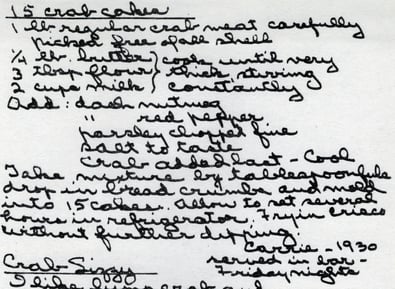 15 crab cakes
1 lb. regular crab meat carefully
picked free of all shell
1/4 lb. butter } cook until very
3 tbsp flour } thick stirring
2 cups milk } constantly
Add: dash nutmeg
" red pepper
parsley chopped fine
salt to taste
Crab added last - Cool
Take mixture by tablespoonfuls
drop in bread crumbs and mold
into 15 cakes. Allow to set several
hours in refrigerator. Fry in crisco
without further dipping
Carrie - 1930
served in bar -
Friday nights
Crab Sizzy
I like lump crab and